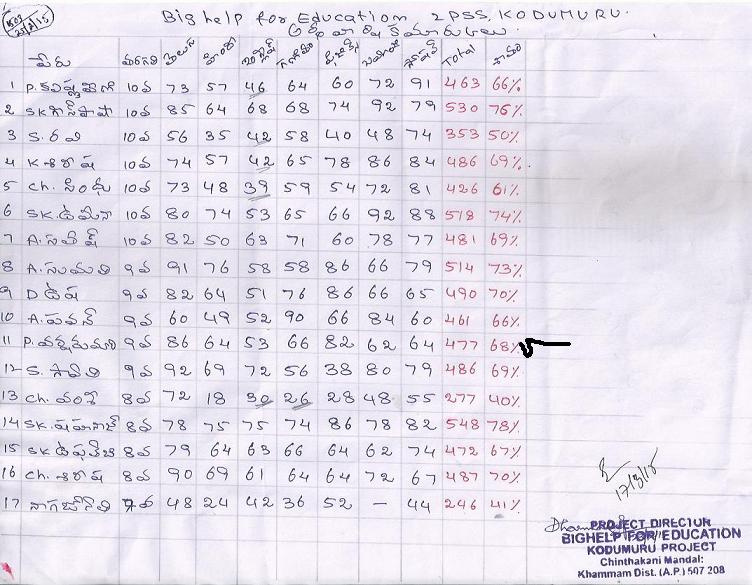 Big help for Education 2PSS, KODUMURU.
పేరు తరగతి తెలుగు హిందీ ఇంగ్లీష్ గణితం సోషల్ Total శాతం
1 P. 10వ 73 57 46 64 60 72 91 463 66%
2 SK. 10వ 85 64 68 68 74 92 79 530 76%
3 S. రవి 10వ 56 35 42 58 40 48 74 353 50%
4 K శిరీష 10వ 74 57 42 65 78 86 84 486 69%
5 Ch. సింధు 10వ 73 48 39 59 54 72 81 426 61%
6 SK. 10వ 80 74 53 65 66 92 88 518 74%
7 A. సతీష్ 10వ 82 50 63 71 60 78 77 481 69%
8 A. సుమతి 9వ 91 76 58 58 86 66 79 514 73%
9 D ఉష 9వ 82 64 51 76 86 66 65 490 70%
10 A. పవన్ 9వ 60 49 52 90 66 84 60 461 66%
11 P. 9వ 86 64 53 66 82 62 64 477 68%
12 S. 9వ 92 69 72 56 38 80 79 486 69%
13 Ch. వంశీ 8వ 72 18 30 26 28 48 55 277 40%
14 SK. 8వ 78 75 75 74 86 78 82 548 78%
15 SK 8వ 79 64 63 66 64 62 74 472 67%
16 Ch. శిరీష 8వ 90 69 61 64 64 72 67 487 70%
17 7వ 48 24 42 36 52 - 44 246 41%
17/3/15
PROJECT DIRECTUR
BIGHELP FOR EDUCATION
KODUMURU PROJECT
Chinthakani Mandal:
Khammam Dist. (A.P.) 507 208